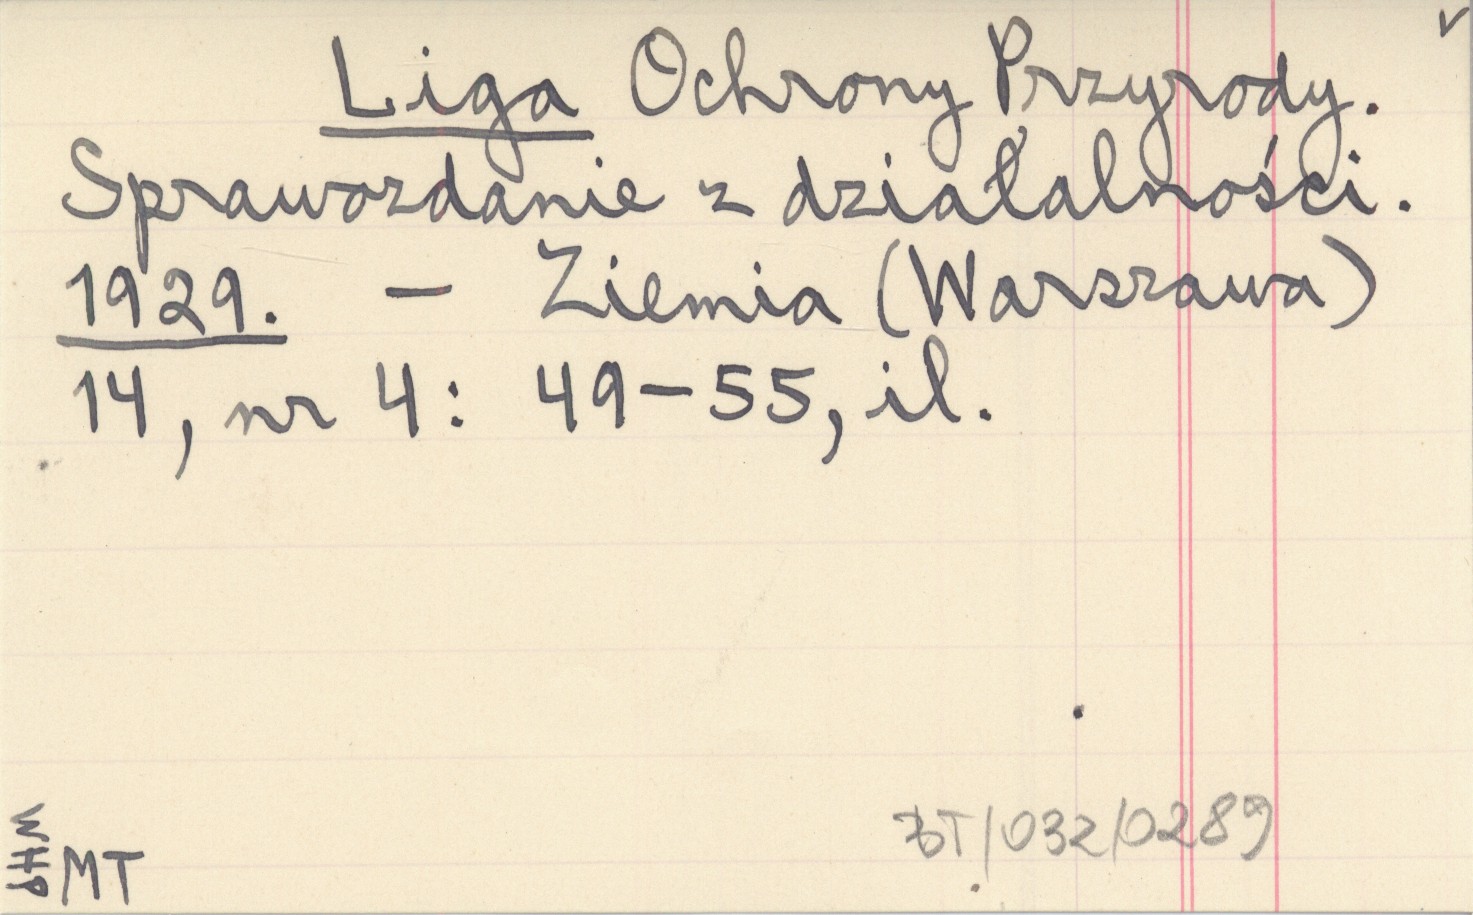 Liga Ochrony Przyrody.
Sprawozdanie z działalności.
1929. – Ziemia (Warszawa)
14, nr 4: 49–55, il.
BT/032/0289
WHP
MT